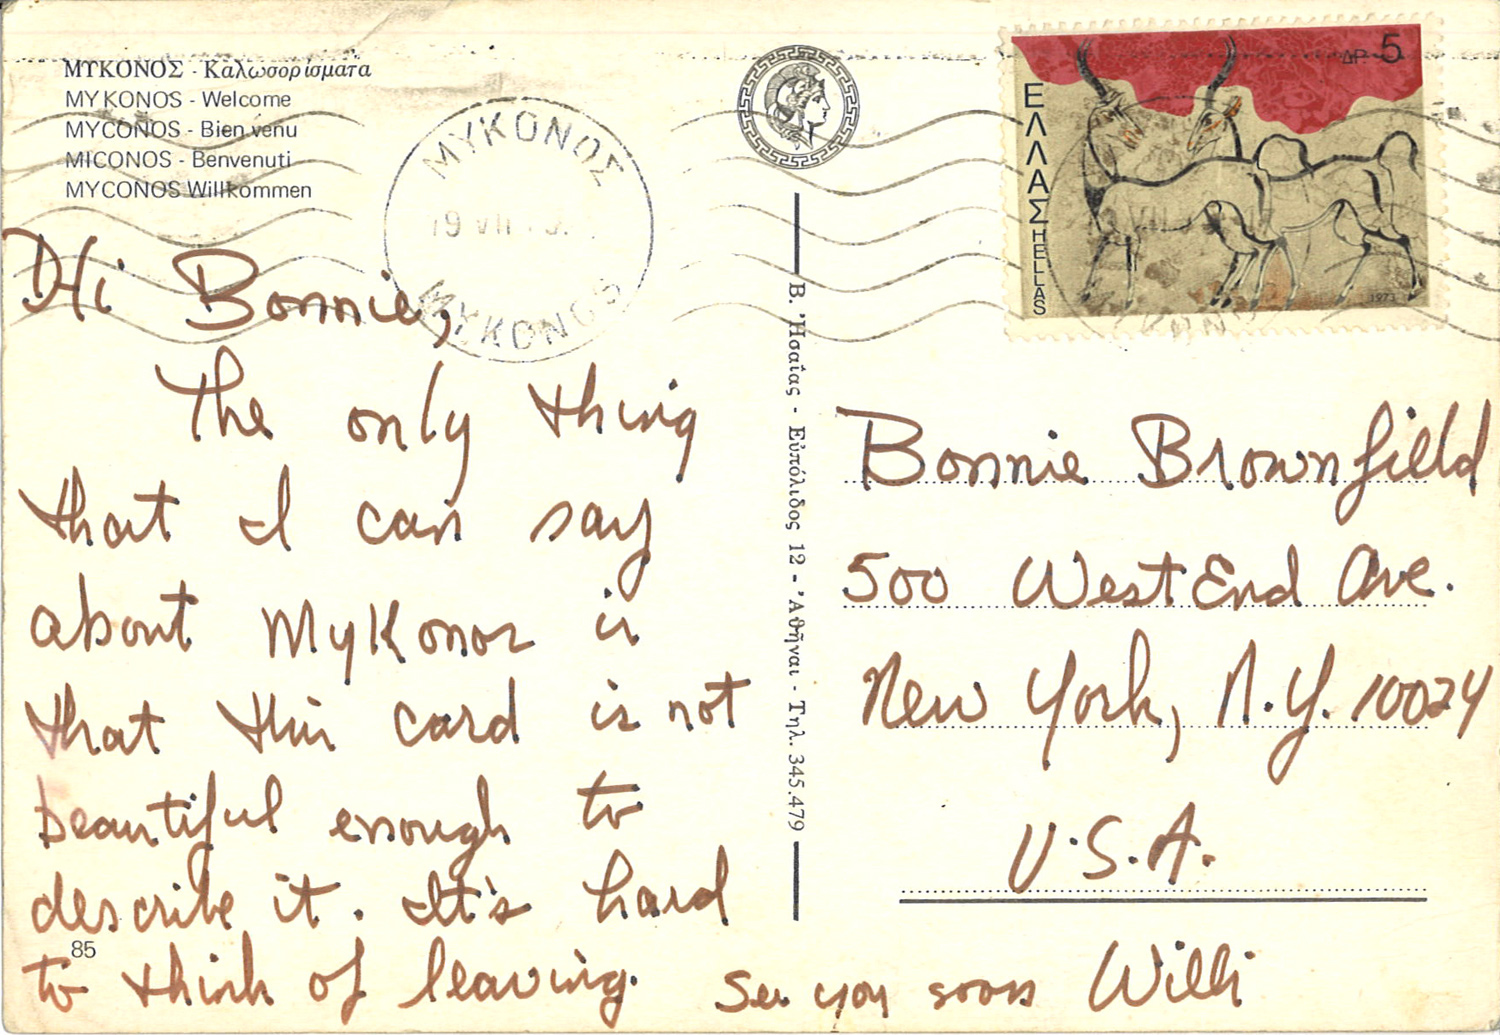 ΜΥΚΟΝΟΣ - Καλωσορίσματα
MYKONOS - Welcome
MYCONOS - Bienvenu
MICONOS - Benvenuti
MYCONOS Willkommen
ΜΥΚΟΝΟΣ
19 VII
MYKONOS
ΔΡ 5
ΕΛΛΑΣ HELLAS
1973
Hi Bonnie,
The only thing
that I can say
about MyKonos is
that this card is not
beautiful enough to
describe it. It's hard
to think of leaving.
See you soon Willi
85
Β. Ἠσαΐας - Εὐπόλιδος 12 - Ἀθῆναι - Τηλ. 345.479
Bonnie Brownfield
500 West End Ave.
New York, N.Y. 10024
U.S.A.